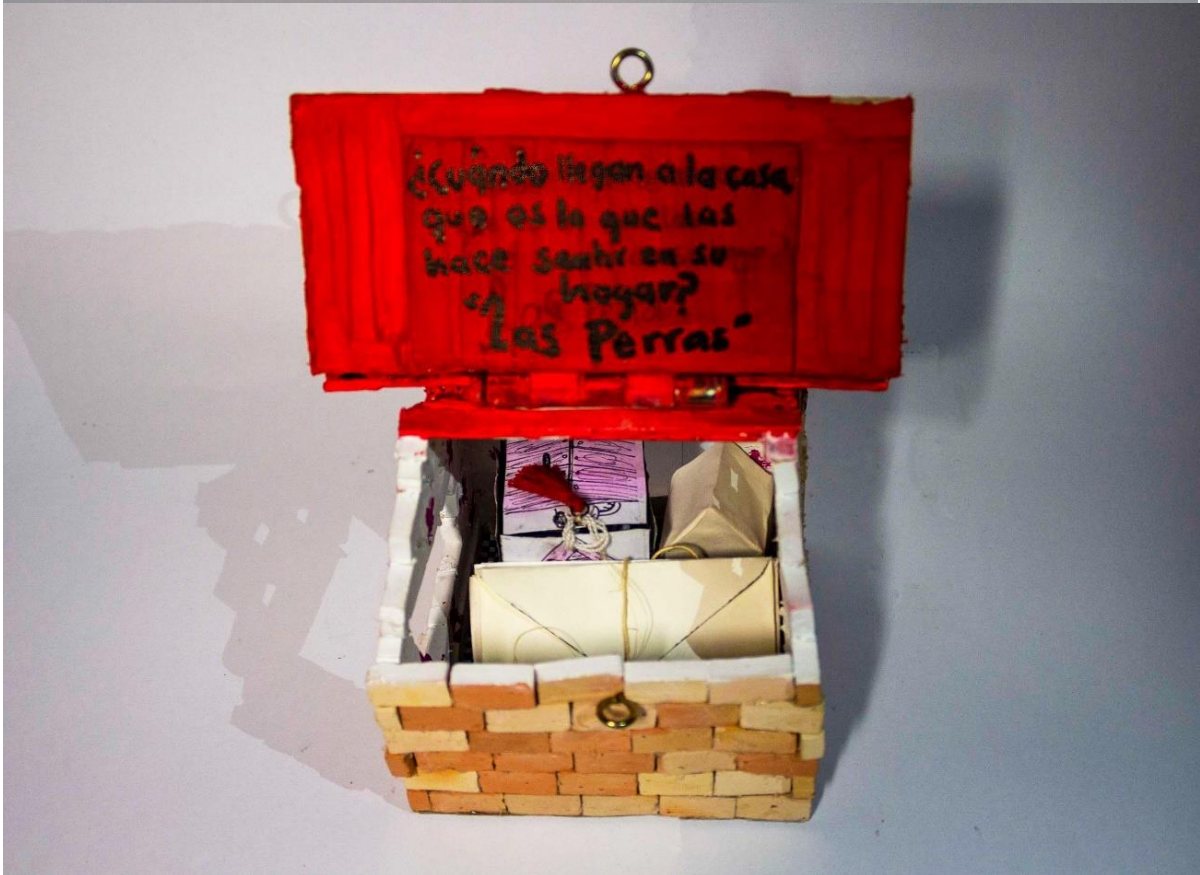 ¿Cuándo llegan a la casa,
que es lo que las
hace sentir en su
hogar?
"Las Perras"